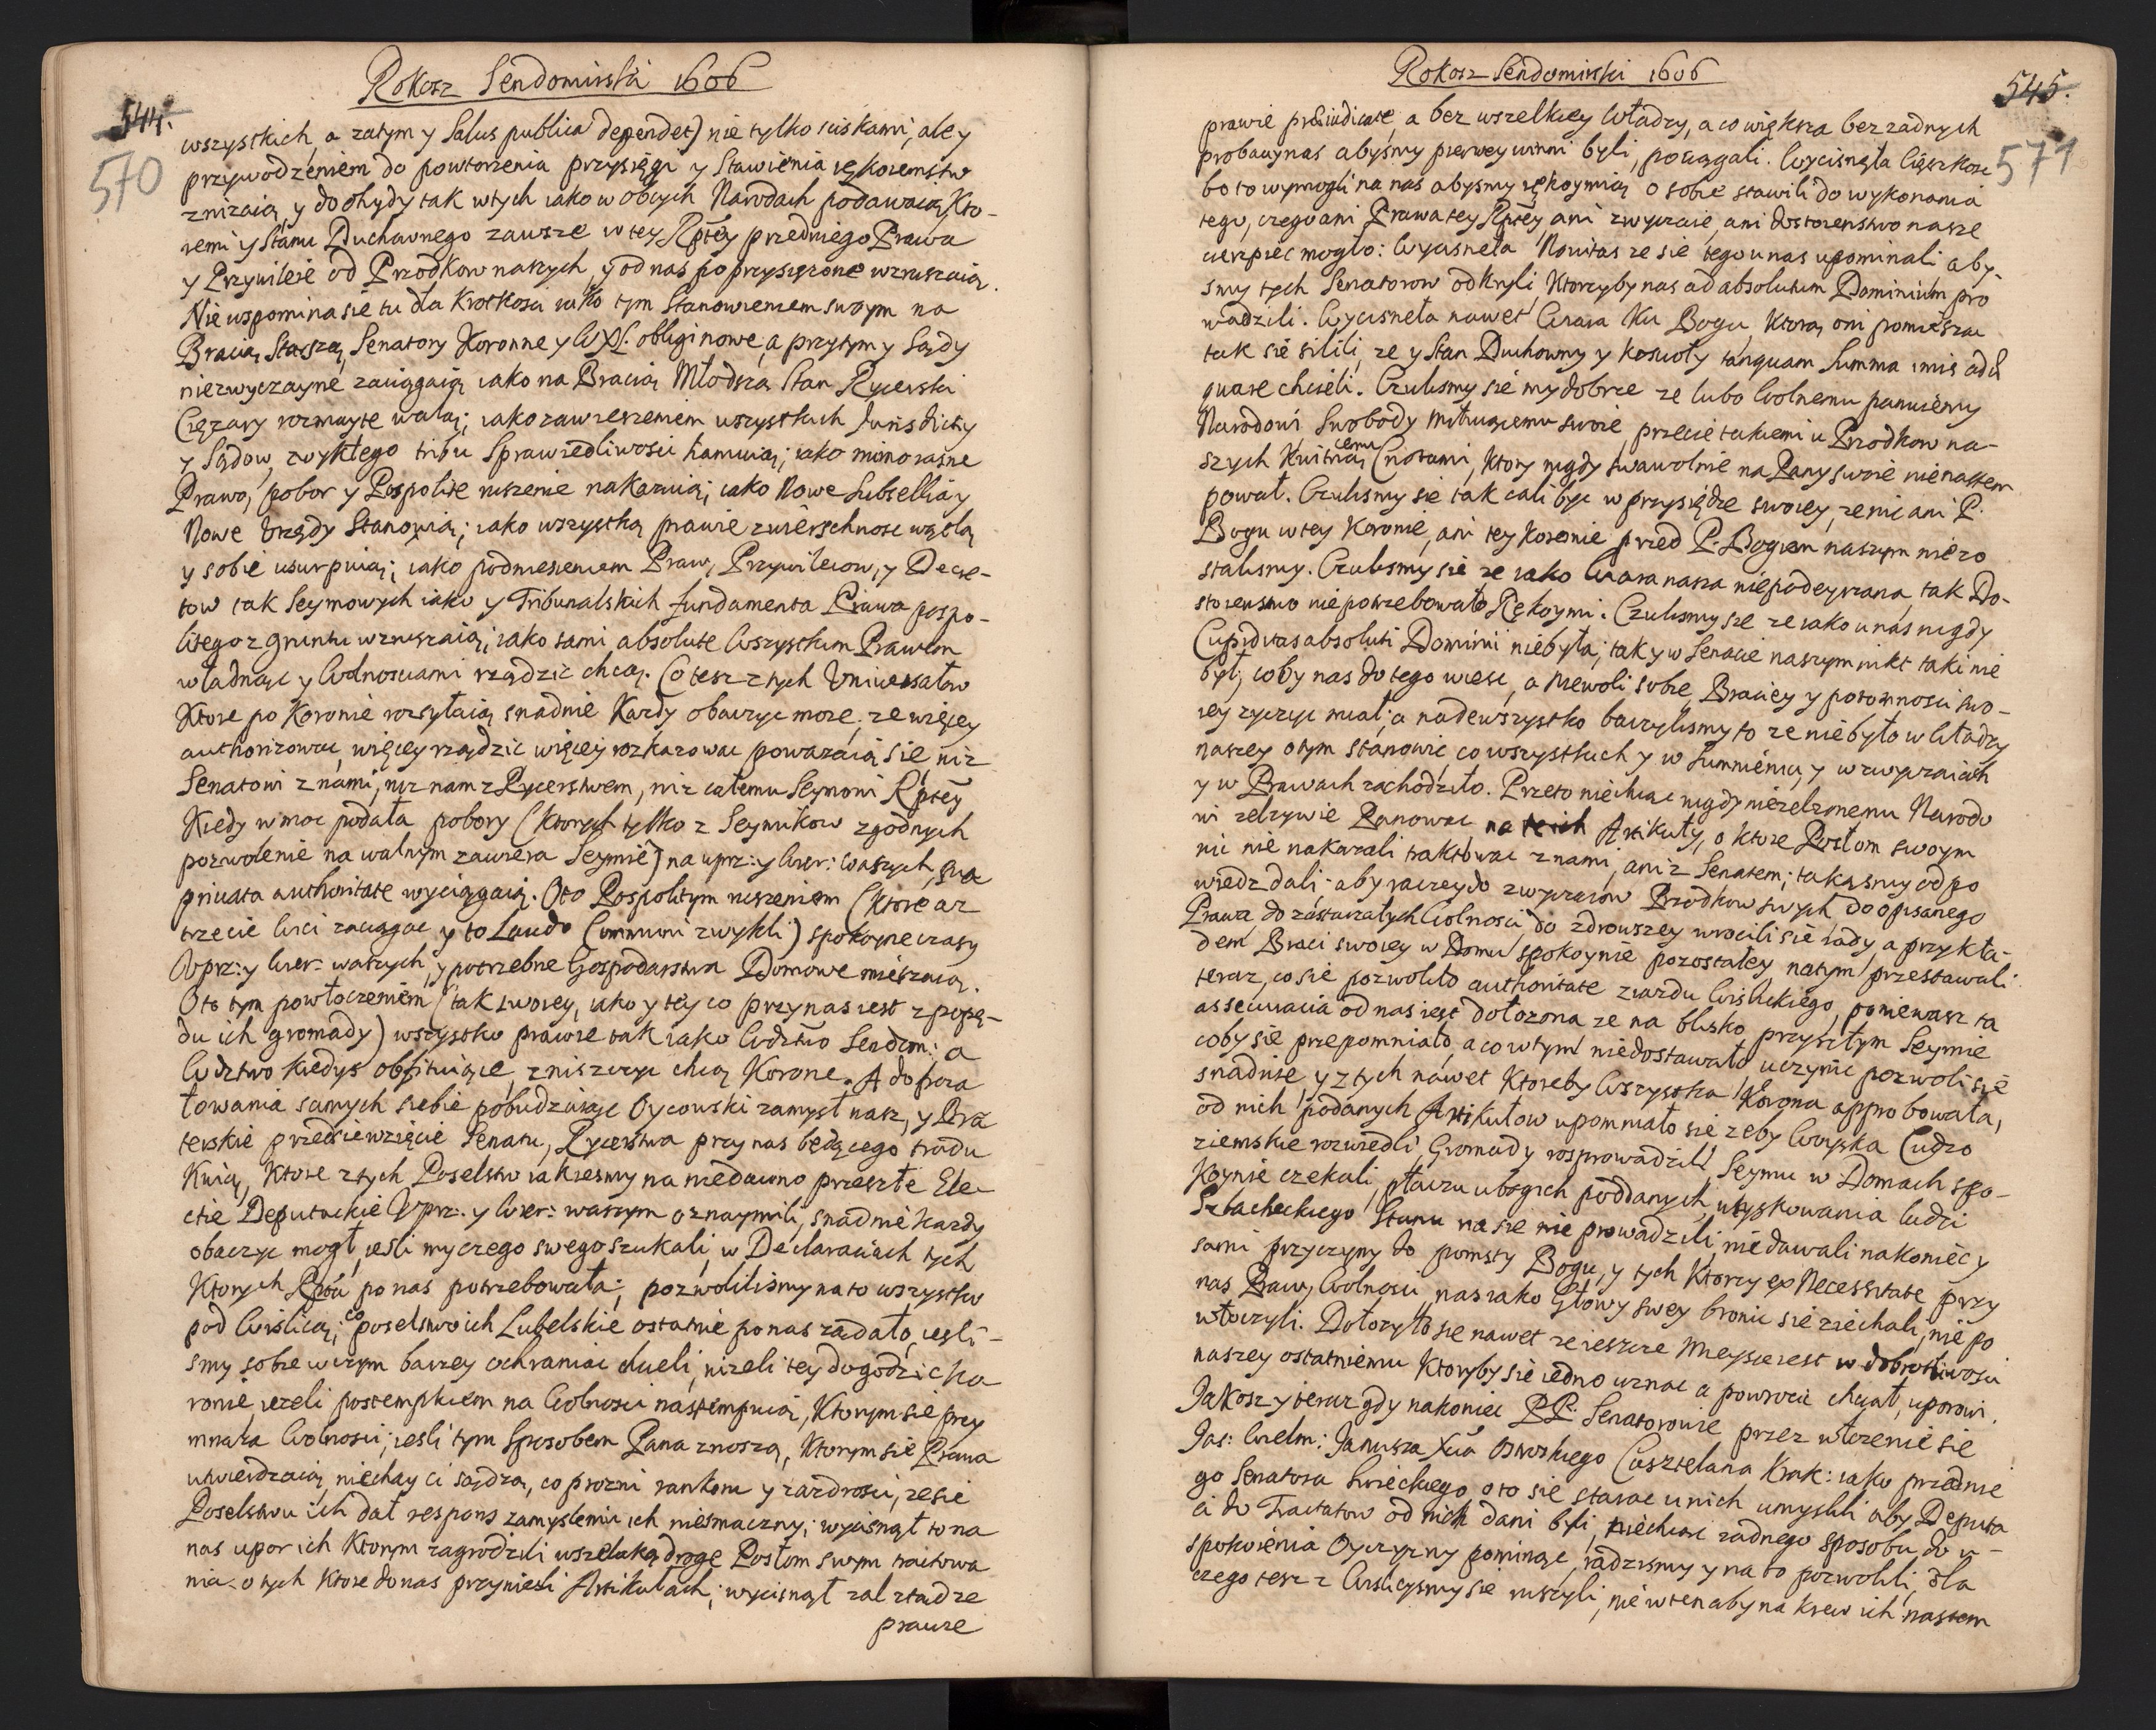 Rokosz Sendomirski 1606
544.
570
wszystkich, a zatym y Salus publica dependet) nie tylko uciskami, ale y
przywodzeniem do powtorzenia przysięgi y Stawienia rękoiemstw
zniżaią, y do ohydy tak w tych iako w obcych Narodach podawaią, Kto-
remi y Stanu Duchownego zawsze w tey Rptey przedniego Prawa
y Przywileie od Przodkow naszych, y od nas poprzysięzone wzruszaią.
Nie wspomina sie tu dla krotkosci iako tym Stanowieniem swoym na
Bracią Starszą, Senatory Koronne y WXL. obligi nowe, a przytym y Sądy
niezwyczayne zaciągaią iako na Bracią Młodszą Stan Rycerski
Cięzary rozmayte walą; iako zawieszeniem wszystkich Jurisdicty
y Sądow, zwykłego tribu Sprawiedliwosci hamuią; iako mimo iasne
Prawo, pobor y Pospolite ruszenie nakazuią; iako Nowe Subsellia y
Nowe Urzędy Stanowią; iako wszystką prawie zwierschnosc wątlą
y sobie usurpuią; iako podniesieniem Praw, Przywileiow, y Decre-
tow tak Seymowych iako y Tribunalskich fundamenta Prawa pospo-
litego z gruntu wzruszaią; iako sami absolute Wszystkim Prawem
władnąc y Wolnosciami rządzic chcą. Co tesz z tych Uniwersałow
Ktore po Koronie rozsyłaią snadnie Kazdy obaczyc moze, ze więcey
authorizowac, więcey rządzic więcey rozkazowac powazaią sie niz
Senatowi z nami, niz nam z Rycerstwem, niz całemu Seymowi Rptey
Kiedy w moc podała pobory (Ktorych tylko z Seymikow zgodnych
pozwolenie na walnym zawiera Seymie) na uprz: y Wier: Waszych, sua
privata authoritate wyciągaią. Oto Pospolitym ruszeniem (ktore az
trzecie Wici zaciągac y to Laudo Communi zwykli) spokoyne czasy
Uprz: y Wier: waszych, y potrzebne Gospodarstwa Domowe mieszaią.
Oto tym powłoczeniem (tak swoiey, iako y tey co przy nas iest z popę-
du ich gromady) wszystko prawie tak iako Wdztwo Sendom: a
Wdztwo kiedys obfituiące, zniszczyc chcą Koronę. A do pora
towania samych siebie pobudzaiąc Oycowski zamysł nasz, y Bra
terskie przedsiewzięcie Senatu, Rycerstwa przy nas będącego tradu
kuią, Ktore z tych Poselstw iakiesmy na niedawno przeszłe Ele-
ctie Deputackie Uprz: y Wier: waszym oznaymili, snadnie kazdy
obaczyc mogł, iesli my czego swego szukali, w Declaraciach tych
Ktorych Rpta po nas potrzebowała; pozwolilismy na to wszystko
pod Wislicą; co poselstwo ich Lubelskie ostatnie po nas ządało, iesli-
smy sobie w czym barzey ochraniac chcieli, nizeli tey dogodzic Ko
ronie, iezeli postempkiem na Wolnosci nastempuią, Ktorym sie przy
mnaza Wolnosci; iesli tym sposobem Pana znoszą, Ktorym sie Prawa
utwierdzaią, niechay ci sądzą, co prozni rankoru y zazdrosci, ze sie
Poselstwu ich dał respons zamysleniu ich niesmaczny; wycisnął to na
nas upor ich Ktorym zagrodzili wszelaką drogę Posłom swym tractowa
nia o tych Ktore do nas przyniesli Artikułach; wycisnął zal ztad ze
prawie
Rokosz Sendomirski 1606
545.
571
prawie praeiudicate, a bez wszelkiey Władzy, a co większa bez zadnych
probacy nas abysmy pierwey winni byli, pociągali. Wycisnęła Cięszkosc
bo to wymogli na nas abysmy rękoymią o sobie stawili do wykonania
tego, czego ani Prawa tey Rptey, ani zwyczaie, ani dostoienstwo nasze
cierpiec mogło: Wycisnęła Novitas ze sie tego u nas upominali, aby-
smy tych Senatorow odkryli, Ktorzyby nas ad absolutum Dominium pro
wadzili. Wycisnęła nawet Wiara Ku Bogu, Ktorą oni pomieszac
tak sie silili, ze y Stan Duchowny y koscioły tanquam Summa imis adae
quare chcieli. Czulismy sie my dobrze ze lubo Wolnemu panuiemy
Narodowi Swobody miłuiącemu swoie, przecie takiemi u Przodkow na-
szych kwitnącemu Cnotami, ktory nigdy swawolnie na Pany swoie nie nastem
pował. Czulismy sie tak cali byc w przysiędze swoiey, ze nic ani P.
Bogu w tey Koronie, ani tey Koronie przed P. Bogiem naszym nie zo
stalismy. Czulismy sie ze iako Wiara nasza niepodeyrzana, tak Do-
stoienstwo nie potrzebowało Rękoymi. Czulismy sie ze iako u nas nigdy
Cupiditas absoluti Dominii nie była; tak y w Senacie naszym nikt taki nie
był, coby nas do tego wiesc, a niewoli sobie, Braciey y potomnosci swo-
iey zyczyc miał; a nadewszystko baczylismy to ze nie było w Władzy
naszey o tym stanowic, co wszystkich y w Sumnieniu, y w zwyczaiach
y w Prawach zachodziło. Przeto niechcac nigdy niezelzonemu Narodo
wi zelzywie Panowac, na te ich Artikuły, o ktore Posłom swoym
nic nie nakazali traktowac z nami, ani z Senatem; takąsmy odpo
wiedz dali; aby raczey do zwyczaiow Przodkow swych, do opisanego
Prawa do zastarzałych Wolnosci, do zdrowszey wrocili sie rady, a przykła-
dem Braci swoiey w Domu spokoynie pozostałey na tym przestawali
teraz, co sie pozwoliło authoritate ziazdu Wislickiego, poniewasz ta
assecuracia od nas iest dołozona ze na blisko przyszłym Seymie
coby sie przepomniało, a co w tym niedostawało uczynic pozwoli się
snadnie, y z tych nawet Ktoreby Wszystka ta Korona approbowała,
od nich podanych Artikułow upomniało sie zeby Woyska Cudzo
ziemskie rozwiedli, Gromady rosprowadzili, Seymu w Domach spo-
koynie czekali, płaczu ubogich poddanych, utyskowania ludzi
Szlacheckiego Stanu na sie nie prowadzili, nie dawali nakoniec y
sami przyczyny do pomsty Bogu, y tych Ktorzy ex Necessitate przy
nas Praw, Wolnosci, nas iako Głowy swey bronic sie ziechali, nie po
włoczyli. Dołozyło sie nawet ze ieszcze Mieysce iest w dobrotliwosci
naszey ostatniemu Ktoryby sie iedno uznac a powrocic chciał, uporowi.
Jakosz y teraz gdy nakoniec PP. Senatorowie przez włozenie sie
Jas: Wielm: Janusza Xcia Ostroskiego Casztelana Krak: iako przednie
go Senatora Swieckiego oto sie starac u nich umyslili aby Deputa
ci do Tractatow od nich dani byli, niechcac zadnego sposobu do u-
spokoienia Oyczyzny pominąc, radzismy y na to pozwolili, dla
czego tesz z Wislicysmy sie ruszyli, nie w ten aby na krew ich nastem